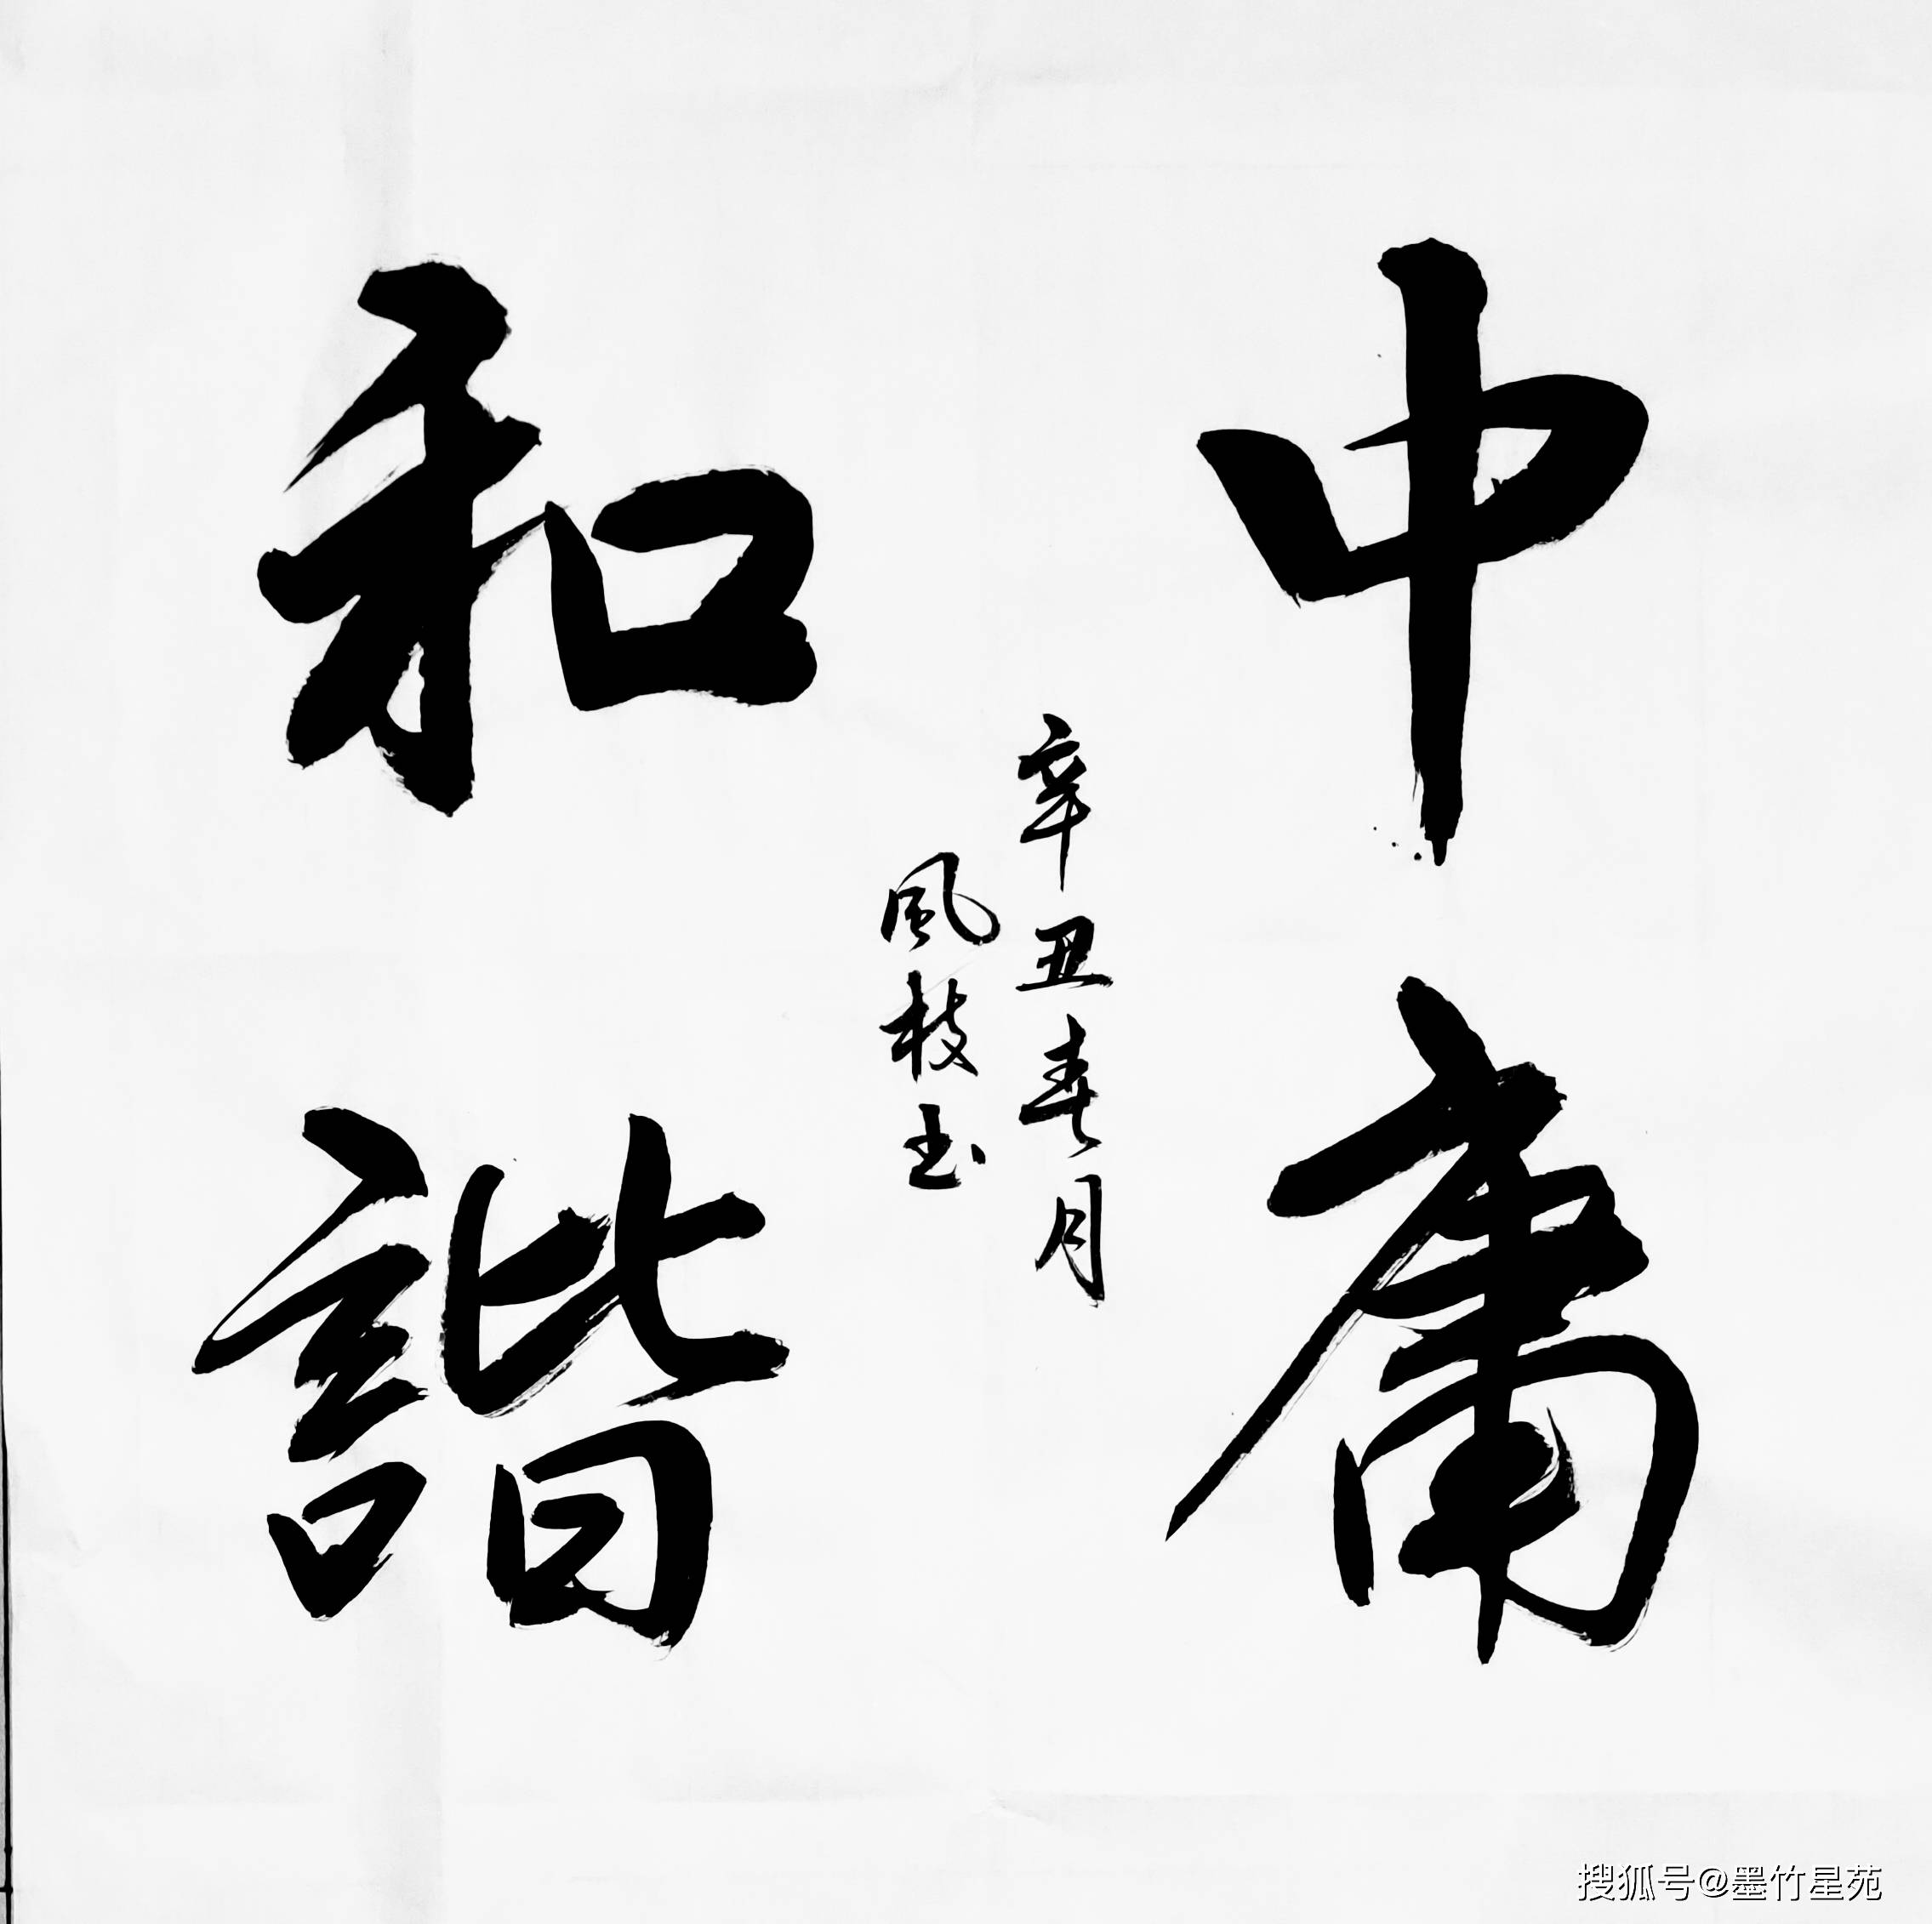 中庸
和諧
辛丑春月
風枝书
搜狐号@墨竹星苑